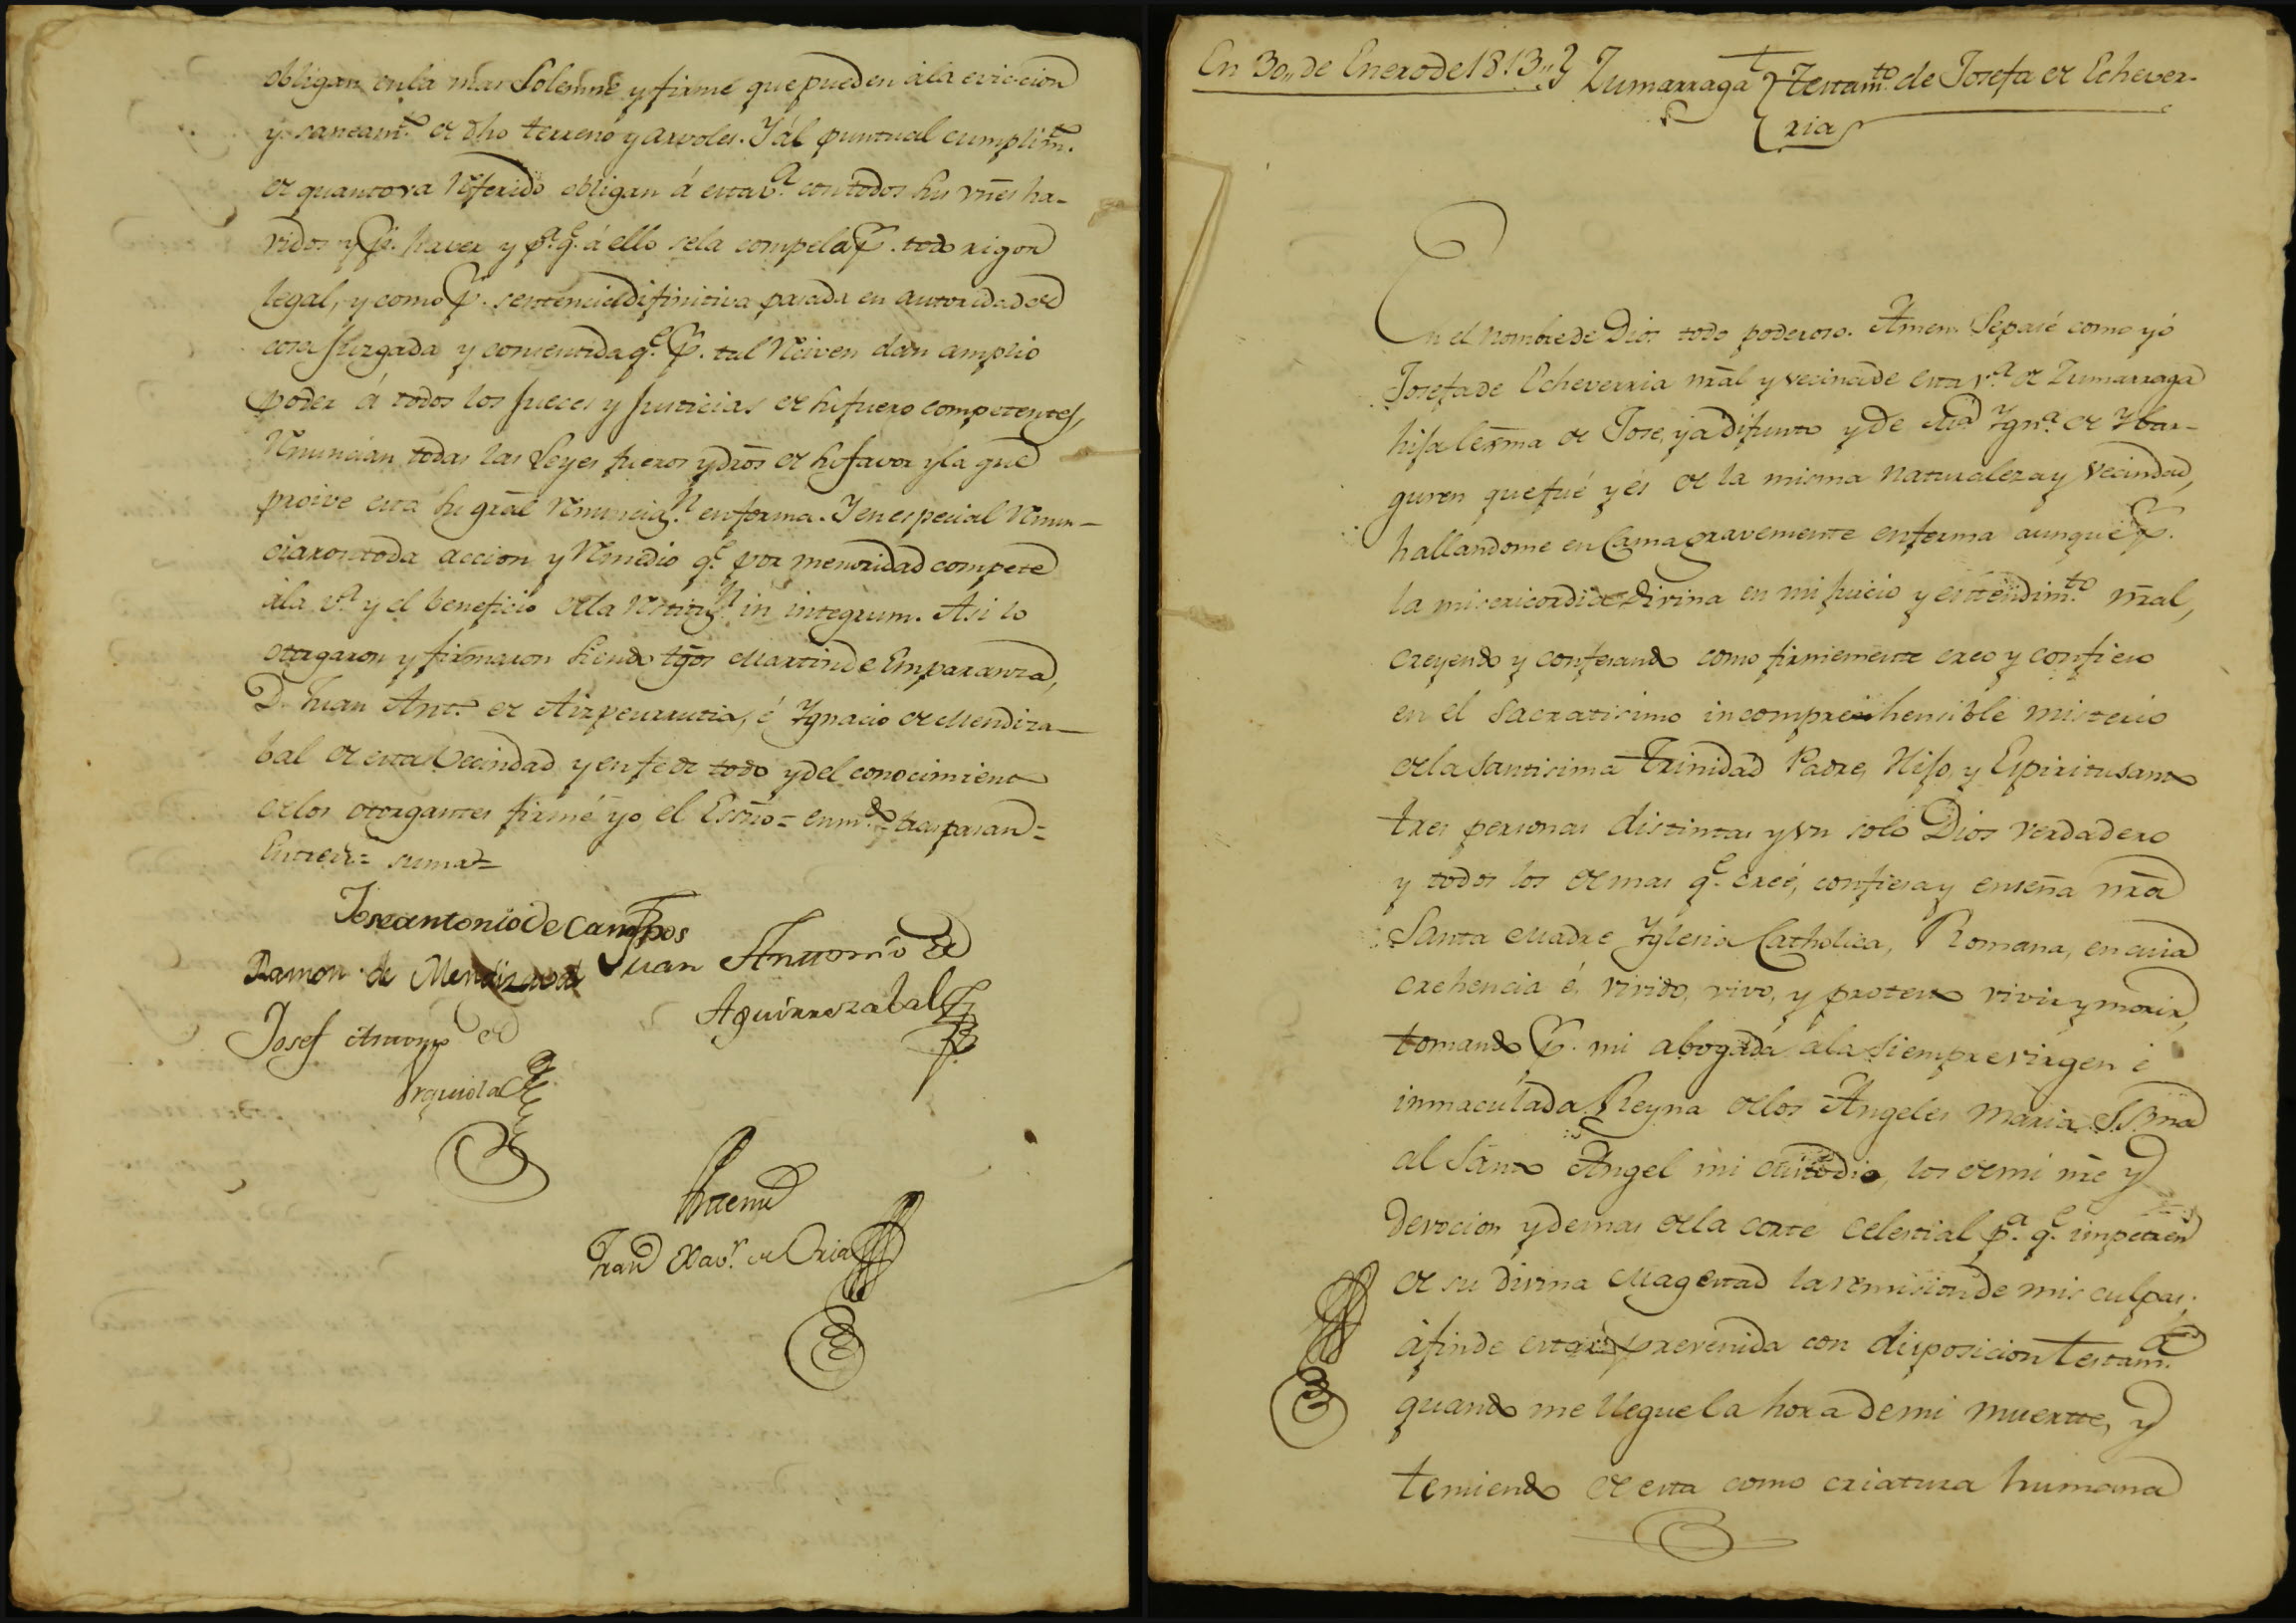 obligan en la mas Solemne y firme que pueden á la eviccion
y saneam.to de dho terreno y arvoles. Y al puntual cumplim.to
de quanto va referido obligan á esta v.a con todos sus vnes ha-
vidos y p.r haver y p.a q.e á ello se la compela p.r todo rigor
legal, y como p.r sentencia difinitiva pasada en autoridad de
cosa Juzgada y consentida q.e p.r tal reciven dan amplio
poder á todos los Jueces y Justicias de su fuero competentes,
renuncian todas las Leyes fueros y dros de su favor y la que
proive esta su gral renunciaz.n en forma. Y en especial renun-
ciaron toda accion y remedio q.e por menoridad compete
á la v.a y el beneficio de la restituz.n in integrum. Asi lo
otorgaron y firmaron siendo tgos Martin de Emparanza,
D. Juan Ant.o de Aizpeurrutia, é Ygnacio de Mendiza-
bal de esta Vecindad y en fe de todo y del conocimiento
de los otorgantes firmé yo el Esno = enm.do = traspasan =
Entrer.s = suma =
Jose antonio de Campos
Ramon de Mendizaval Juan Antonio de
Aguirrezabal
Josef Antonio de
Urquiola
Ante mi
Fran.co Xav.r de Oria
En 30,, de Enero de 1813,, Zumarraga Testam.to de Josefa de Echever-
ria
En el nombre de Dios todo poderoso. Amen. Sepase como yo
Josefa de Echeverria nral y vecina de esta v.a de Zumarraga
hija lexma de Jose, ya difunto y de Ma Ygn.a de Ybar-
guren que fué y és de la misma naturaleza y vecindad,
hallandome en Cama gravemente enferma aunque p.r
la misericordia Divina en mi juicio y entendim.to nral,
creyendo y confesando como firmemente creo y confieso
en el Sacratisimo incomprehensible misterio
de la Santisima Trinidad Padre, Hijo, y Espiritu santo
tres personas distintas y vn solo Dios verdadero
y todos los demas q.e creé, confiesa y enseña nra
Santa Madre Yglesia Catholica, Romana, en cuia
crehencia é vivido, vivo, y protesto vivir y morir,
tomando p.r mi abogada á la siempre virgen é
inmaculada Reyna de los Angeles Maria SSma
al Santo Angel mi custodio, los de mi nre y
devocion y demas de la corte celestial p.a q.e impetren
de su divina Magestad la remision de mis culpas;
á fin de estar prevenida con disposicion testam.a
quando me llegue la hora de mi muerte, y
temiendo de esta como criatura humana